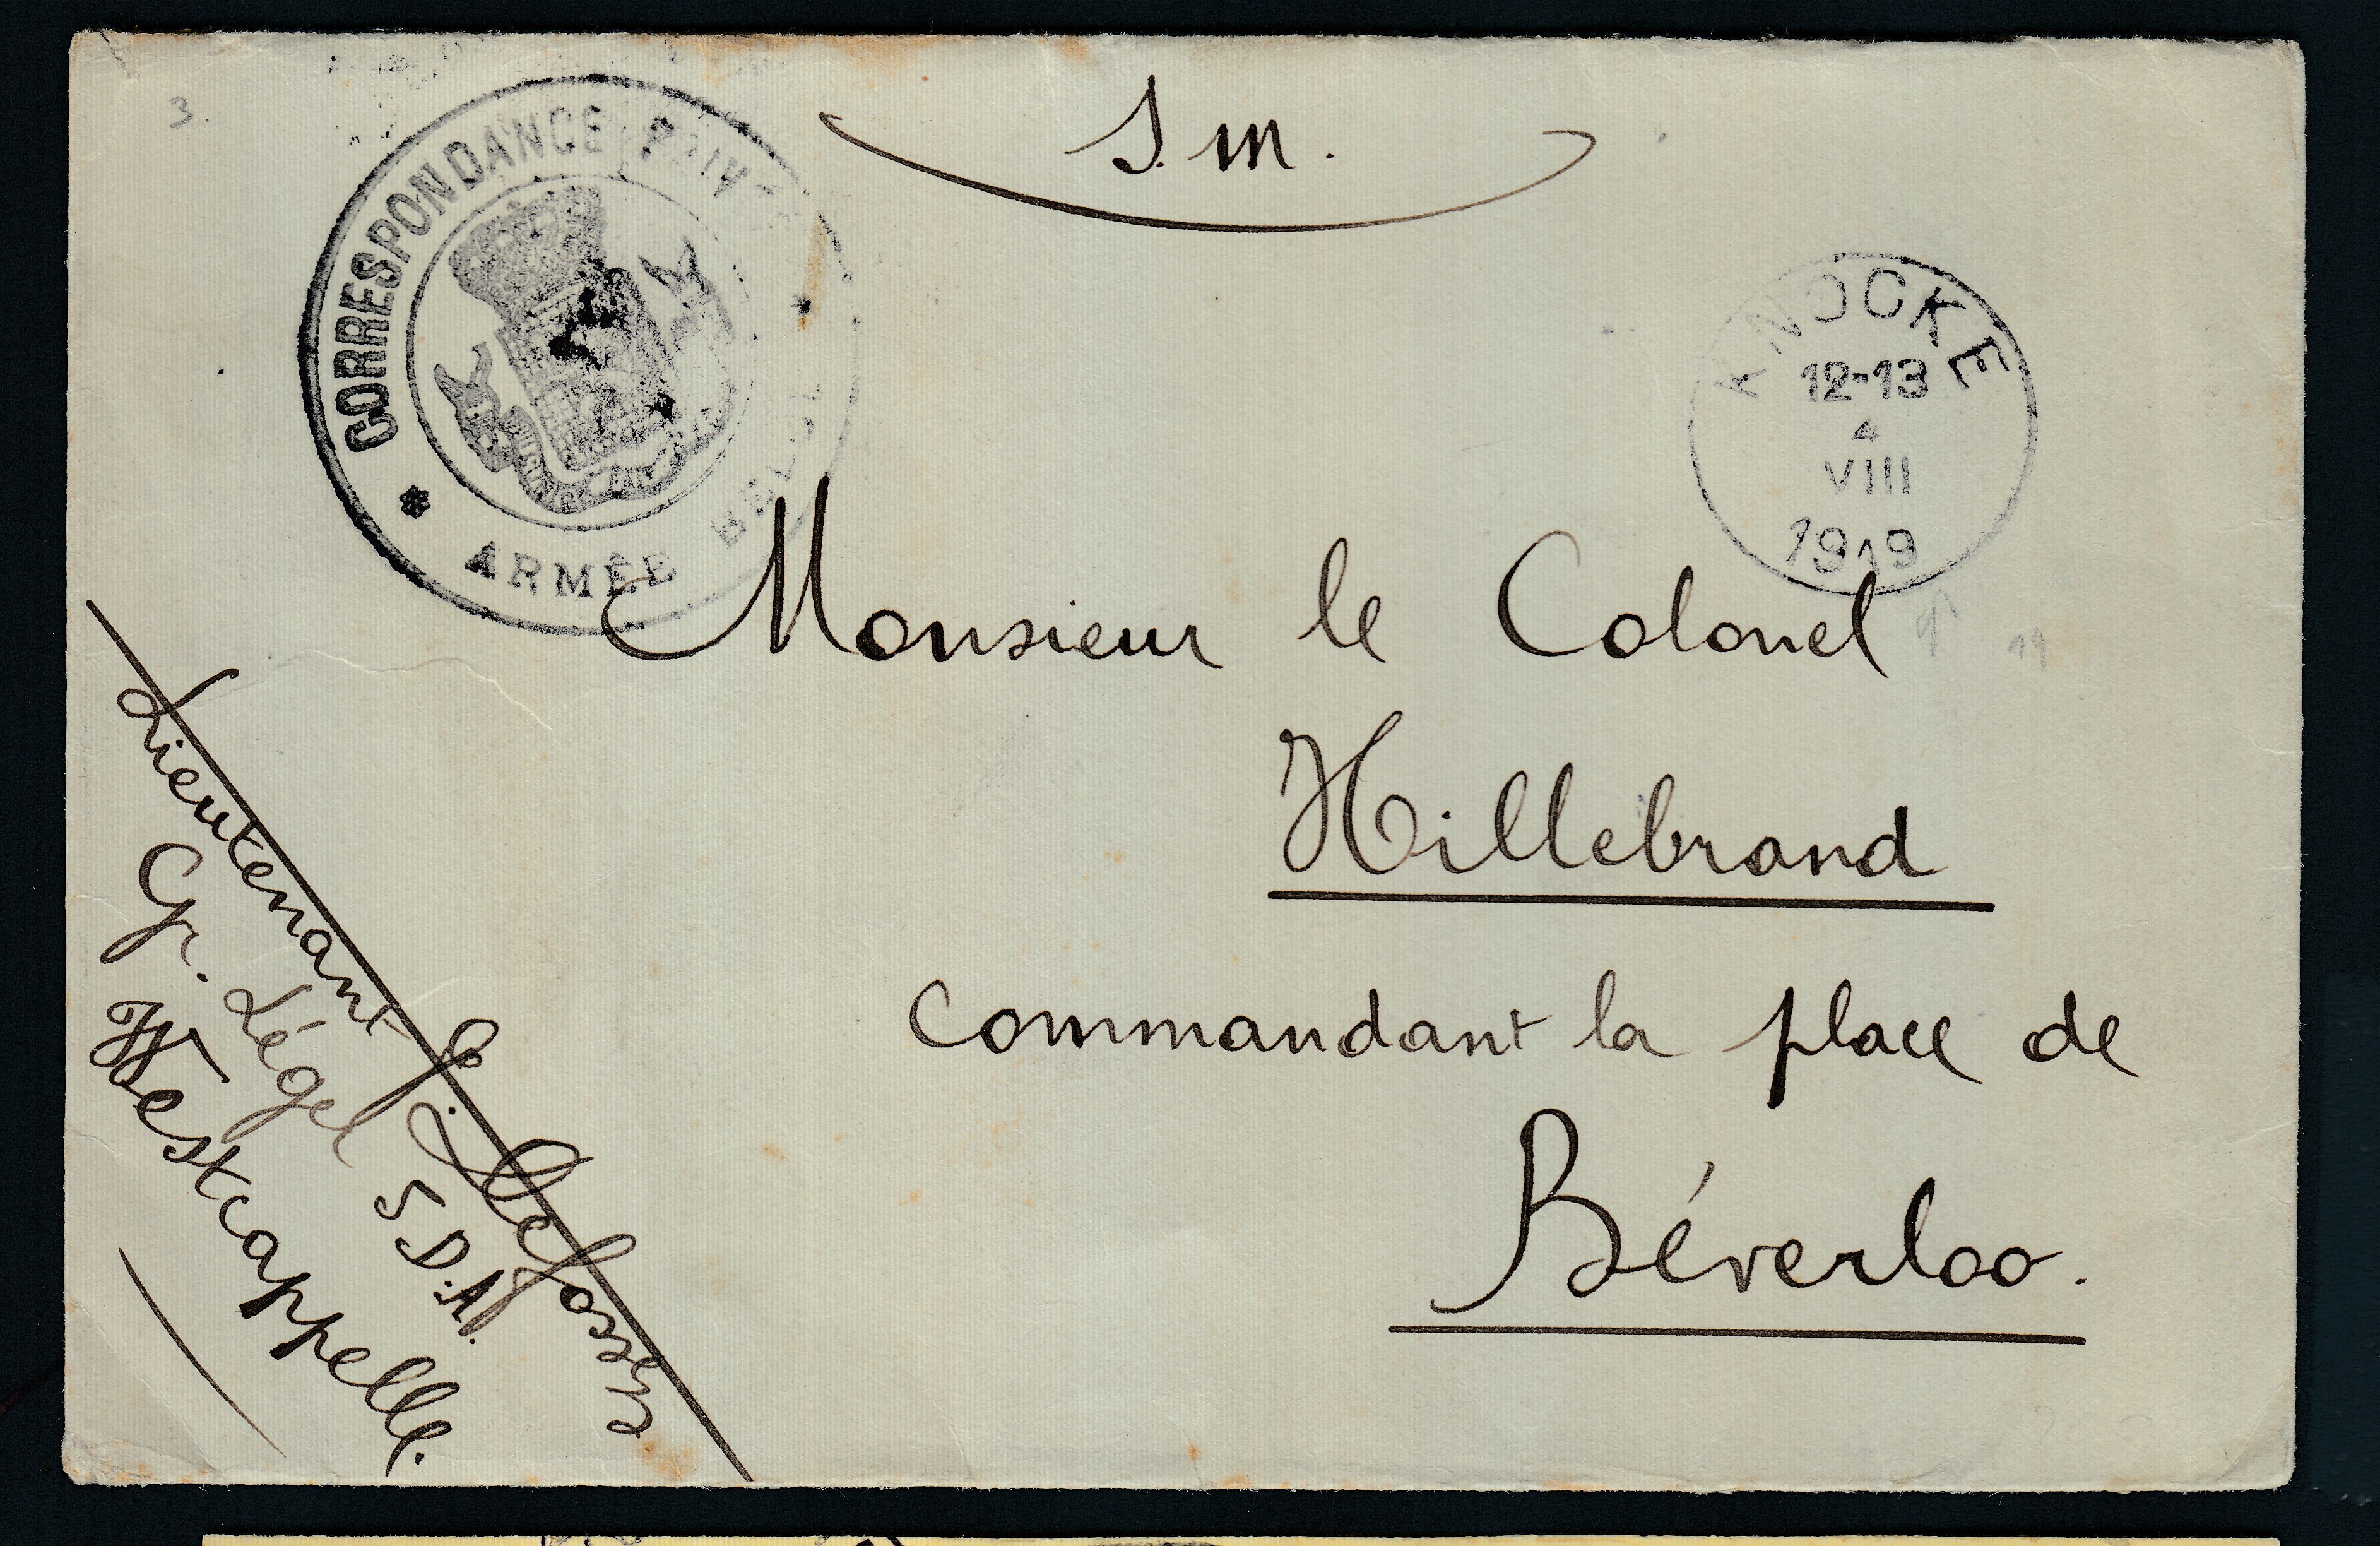 3.
S.M.
CORRESPONDANCE PRIVÉE
ARMÉE BELGE
KNOCKE
12-13
4
VIII
1919
Monsieur le Colonel
Hillebrand
commandant la place de
Béverloo.
Lieutenant
Gr. Léger S.D.A.
Westcappelle.